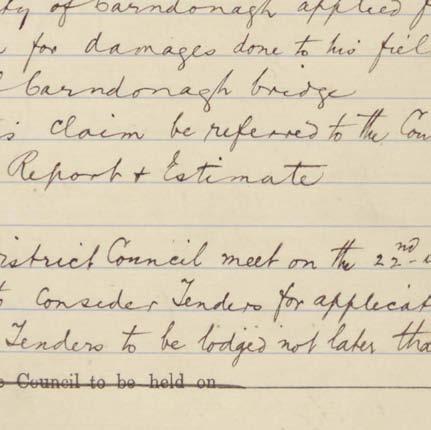 ty of Carndonagh applied f
for damages done to his fiel
Carndonagh bridge
is claim be referred to the Cou
Report & Estimate
istrict Council meet on the 22nd
to consider Tenders for applicat
Tenders to be lodged not later tha
Council to be held on